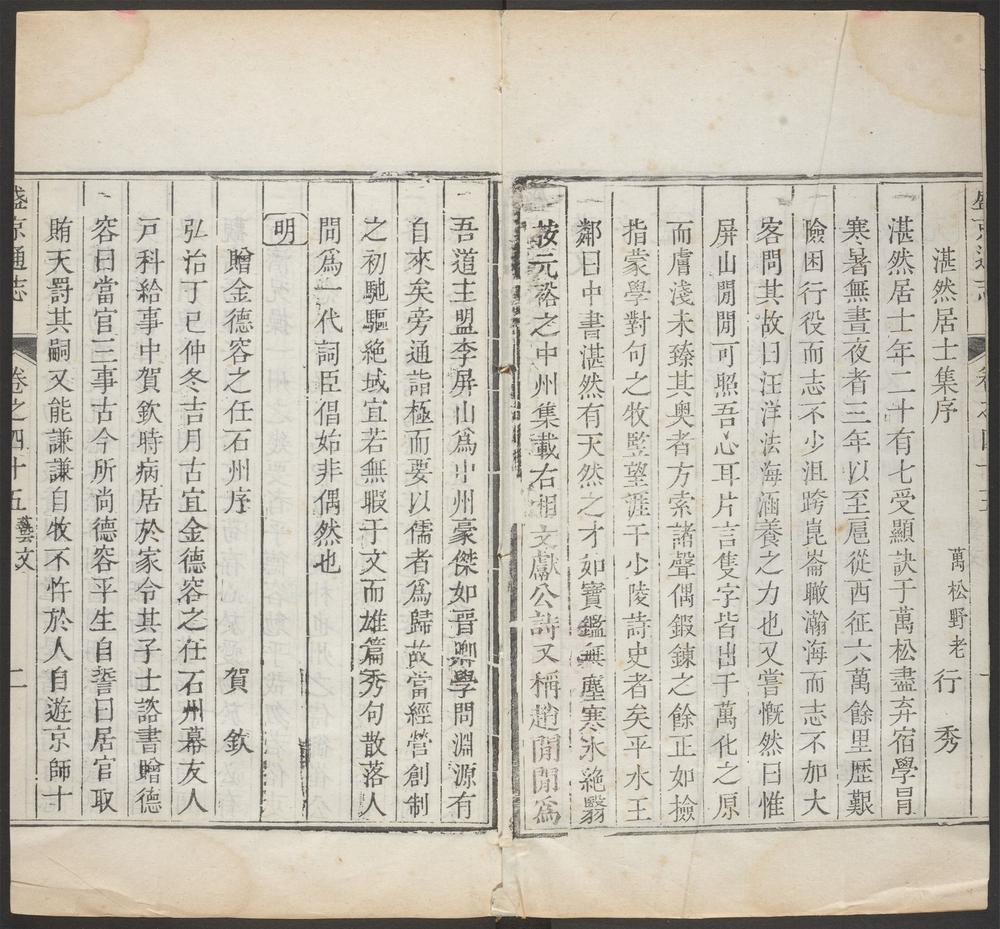 盛京通志
卷之四十五
湛然居士集序
萬松野老 行秀
湛然居士年二十有七受顯訣于萬松盡弃宿學冐
寒暑無晝夜者三年以至扈從西征六萬餘里歷艱
險困行役而志不少沮跨崑崙瞰瀚海而志不加大
客問其故曰汪洋法海涵養之力也又嘗慨然曰惟
屏山閒閒可照吾心耳片言隻字皆出于萬化之原
而膚淺未臻其奧者方索諸聲偶鍜鍊之餘正如撿
指蒙學對句之牧豎望涯于少陵詩史者矣平水王
鄰曰中書湛然有天然之才如寶鑑無塵寒氷絶翳
按元裕之中州集載右相文獻公詩又稱趙閒閒爲
吾道主盟李屏山爲中州豪傑如晋卿學問淵源有
自來矣旁通詣極而要以儒者爲歸故當經營創制
之初馳驅絶域宜若無暇于文而雄篇秀句散落人
間爲一代詞臣倡始非偶然也
明
贈金德容之任石州序
賀欽
弘治丁巳仲冬吉月古宜金德容之任石州幕友人
戸科給事中賀欽時病居於家令其子士諮書贈德
容曰當官三事古今所尚德容平生自誓曰居官取
賄天罸其嗣又能謙謙自牧不忤於人自遊京師十
盛京通志
卷之四十五 藝文
二